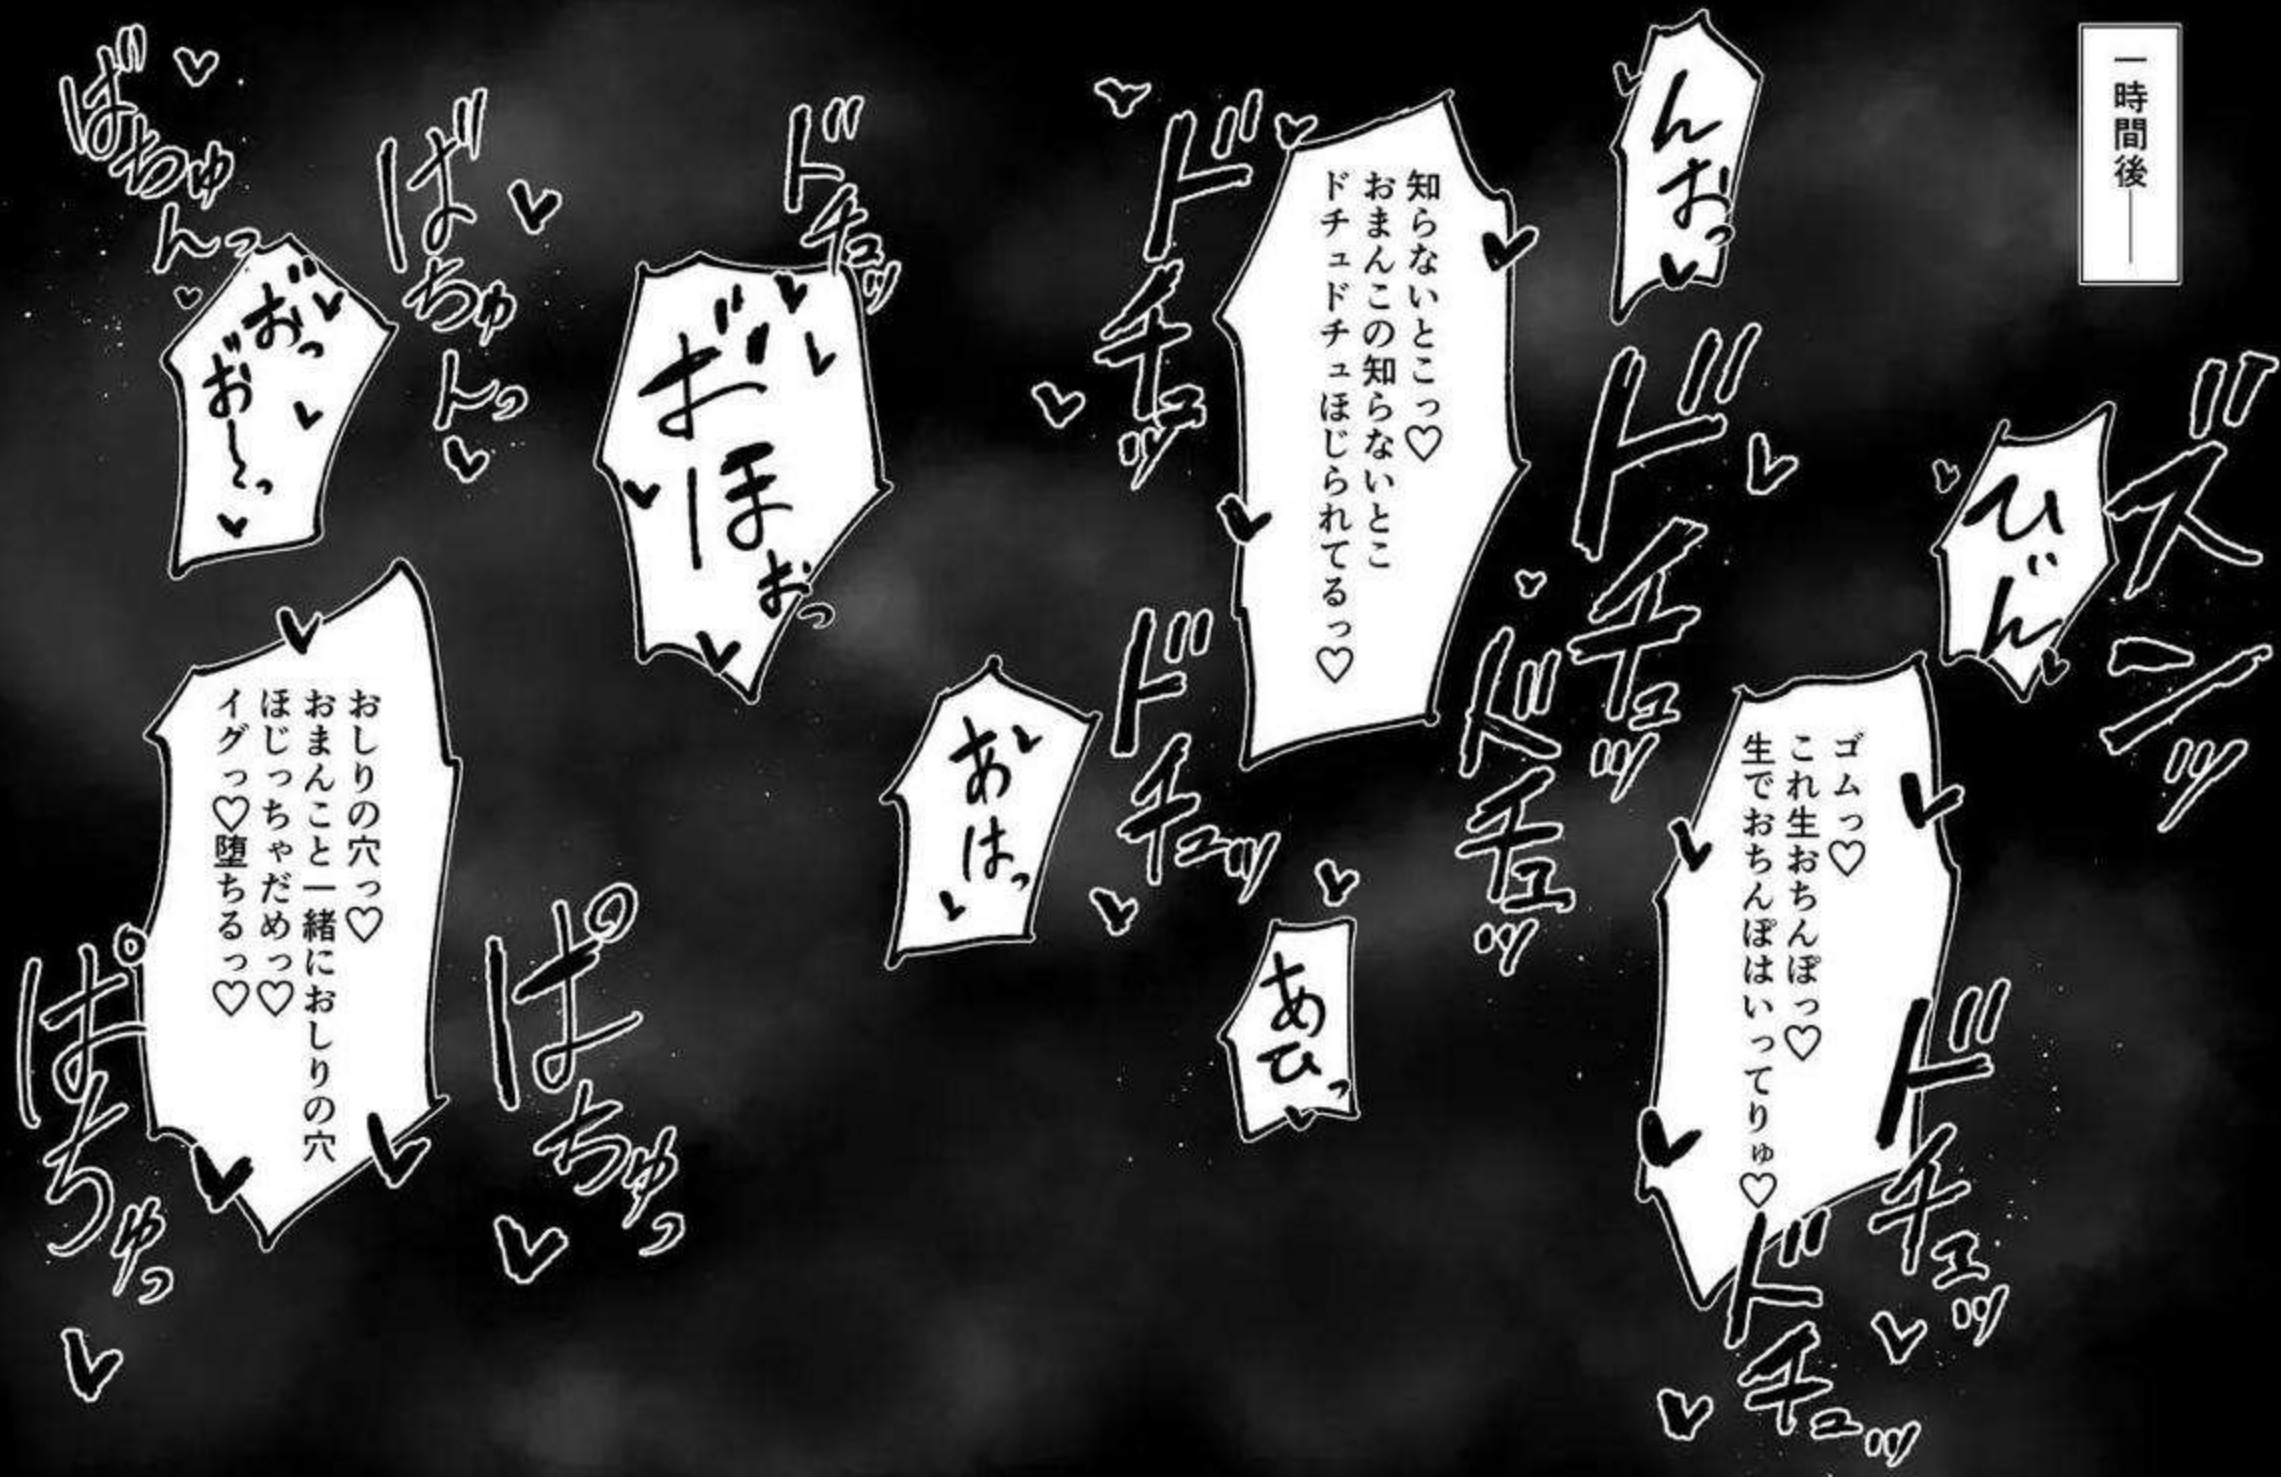 一時間後――
ズンッ
ひぃん
ゴムっ♡
これ生おちんぽっ♡
生でおちんぽはいってりゅ♡
ドチュッ
ドチュッ
んおっ
ドチュッ
ドチュッ
知らないとこっ♡
おまんこの知らないとこ
ドチュドチュほじられてるっ♡
ドチュッ
ドチュッ
あひっ
あはっ
ドチュッ
お゛ほぉっ
ばちゅんっ
ばちゅんっ
お゛っ
お゛〜っ
おしりの穴っ♡
おまんこと一緒におしりの穴
ほじっちゃだめっ♡
イグっ♡堕ちるっ♡
ぱちゅっ
ぱちゅっ